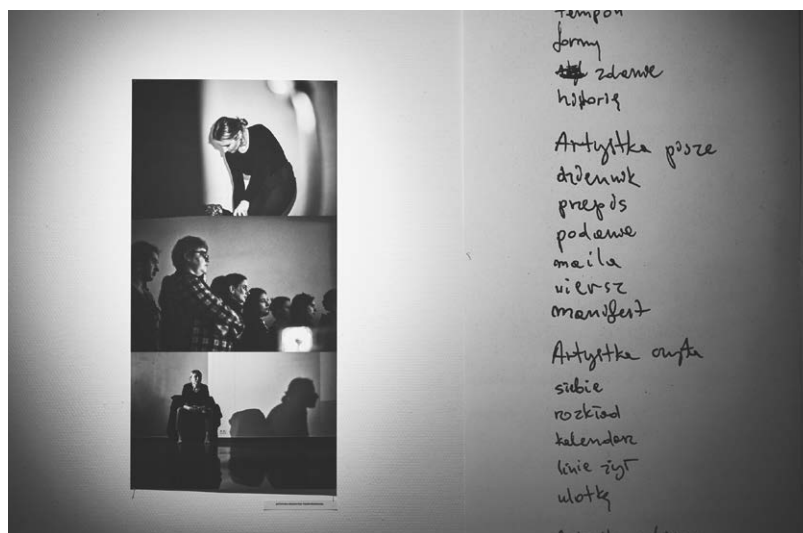 tempon
formy
zdanie
historię
Artystka pisze
dziennik
przepis
podanie
maila
wiersz
manifest
Artystka czyta
siebie
rozkład
kalendarz
linie żył
ulotkę